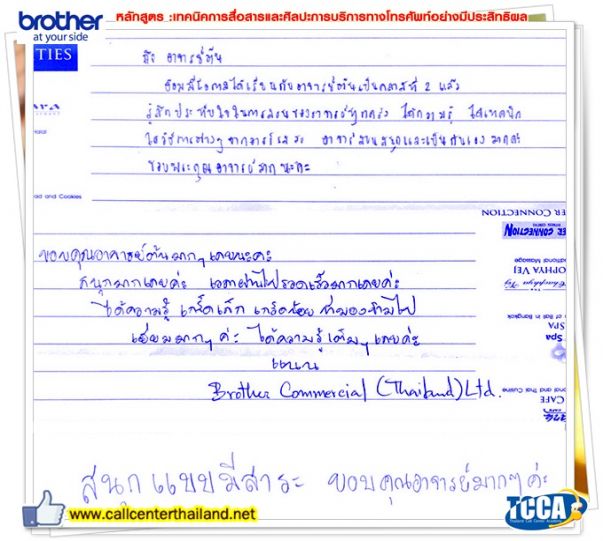 brother at your side
หลักสูตร :เทคนิคการสื่อสารและศิลปะการบริการทางโทรศัพท์อย่างมีประสิทธิผล
TIES
ถึง อาจารย์ต้น
มีโอกาสได้เรียนกับอาจารย์ต้นเป็นคลาสที่ 2 แล้ว
รู้สึกประทับใจในการสอนของอาจารย์ทุกครั้ง ได้ความรู้ ได้เทคนิค
อาจารย์สอนสนุกและเป็นกันเอง มากค่ะ
ขอบพระคุณอาจารย์มากนะคะ
ad and Cookies
ER CONNECTION
ER CONNECTION
ditional Massage
OPHYA VEJ
of in Bangkok
SPA
Spa
onal and Thai Cuisine
CAFE
ขอบคุณอาจารย์ต้นมากๆ เลยนะคะ
สนุกมากเลยค่ะ เวลาผ่านไปรวดเร็วมากเลยค่ะ
ได้ความรู้ เกร็ดเล็ก เกร็ดน้อย ที่มองข้ามไป
เยี่ยมมากๆ ค่ะ ได้ความรู้เต็มๆ เลยค่ะ
แนน
Brother Commercial (Thailand) Ltd.
สนุกแบบมีสาระ ขอบคุณอาจารย์มากๆ ค่ะ
www.callcenterthailand.net
TCCA
Thailand Call Center Academy